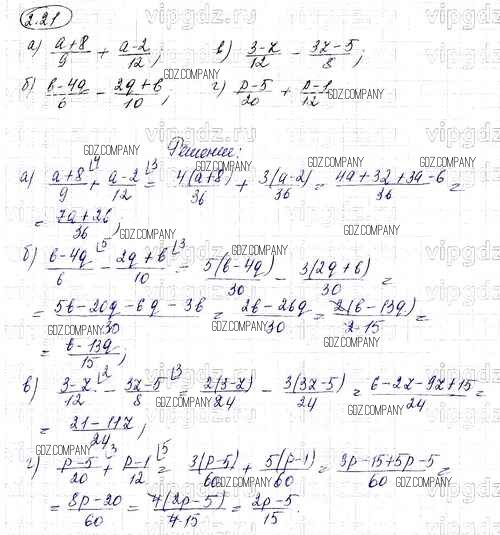 2.21
а) (a+8)/9 + (a-2)/12; в) (3-x)/12 - (3x-5)/8;
б) (b-4q)/6 - (2q+b)/10; г) (p-5)/20 + (p-1)/12
Решение:
а) (a+8)/9 ⌊4 + (a-2)/12 ⌊3 = 4(a+8)/36 + 3(a-2)/36 = (4a+32+3a-6)/36 =
= (7a+26)/36;
б) (b-4q)/6 ⌊5 - (2q+b)/10 ⌊3 = 5(b-4q)/30 - 3(2q+b)/30 =
= (5b-20q-6q-3b)/30 = (2b-26q)/30 = 2(b-13q)/(2·15) =
= (b-13q)/15;
в) (3-x)/12 ⌊2 - (3x-5)/8 ⌊3 = 2(3-x)/24 - 3(3x-5)/24 = (6-2x-9x+15)/24 =
= (21-11x)/24;
г) (p-5)/20 ⌊3 + (p-1)/12 ⌊5 = 3(p-5)/60 + 5(p-1)/60 = (3p-15+5p-5)/60 =
= (8p-20)/60 = 4(2p-5)/(4·15) = (2p-5)/15.
vipgdz.ru
GDZ.COMPANY